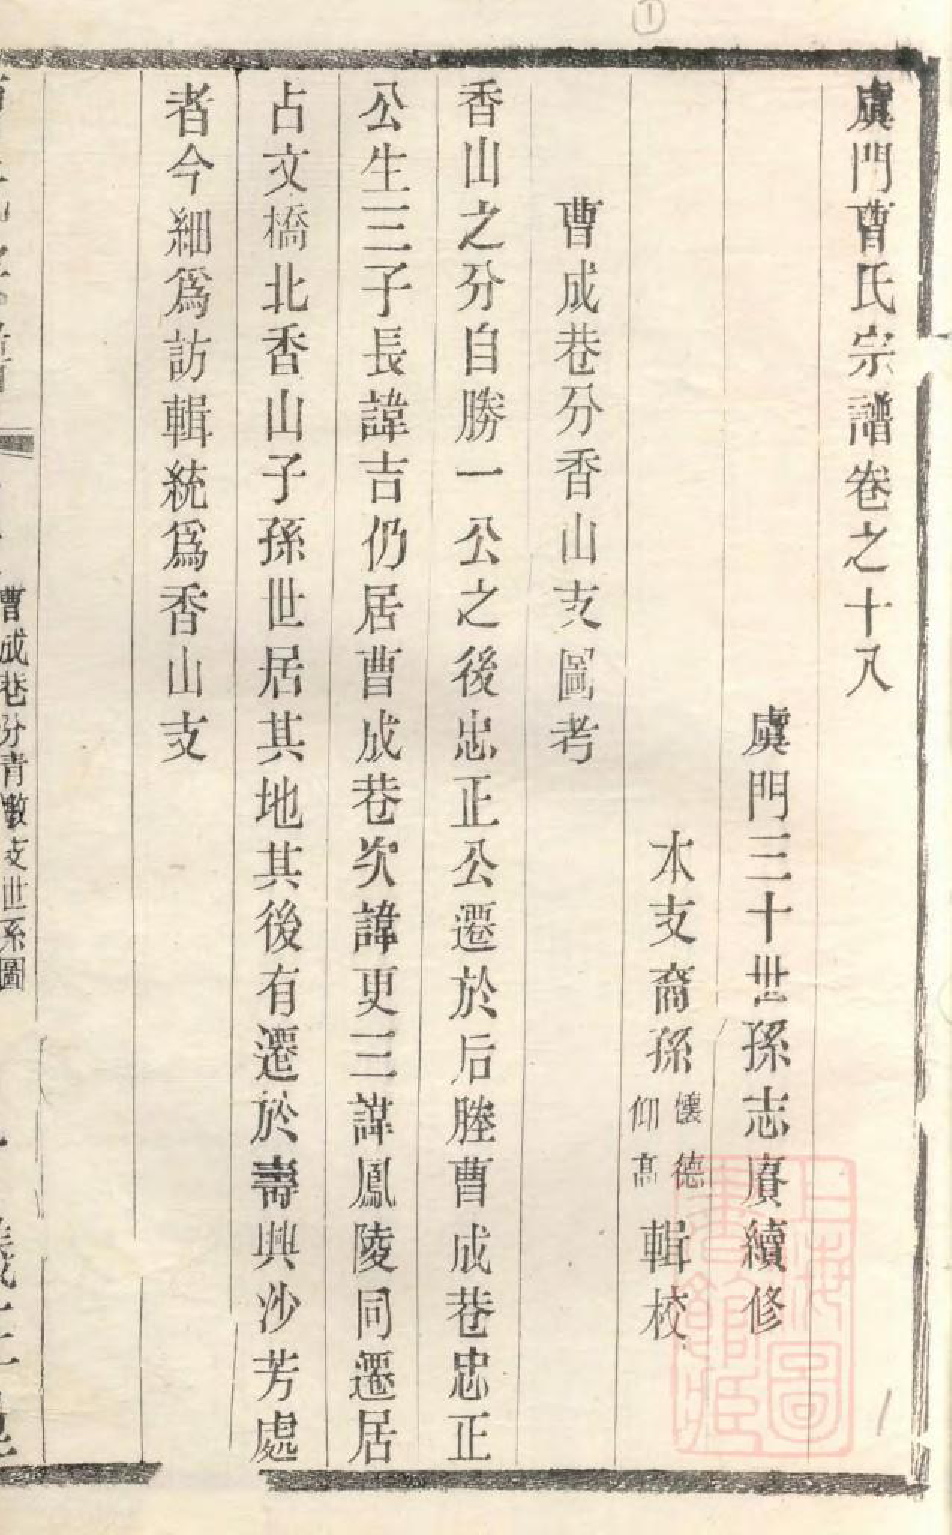 虞門曹氏宗譜卷之十八
虞門三十世孫志賡續修
本支裔孫懷德仰高輯校
曹成巷分香山支圖考
香山之分自勝一公之後忠正公遷於后塍曹成巷忠正
公生三子長諱吉仍居曹成巷次諱更三諱鳳陵同遷居
占文橋北香山子孫世居其地其後有遷於壽興沙芳處
者今細爲訪輯統爲香山支
曹成巷分青墩支世系圖
上海圖書館藏
①